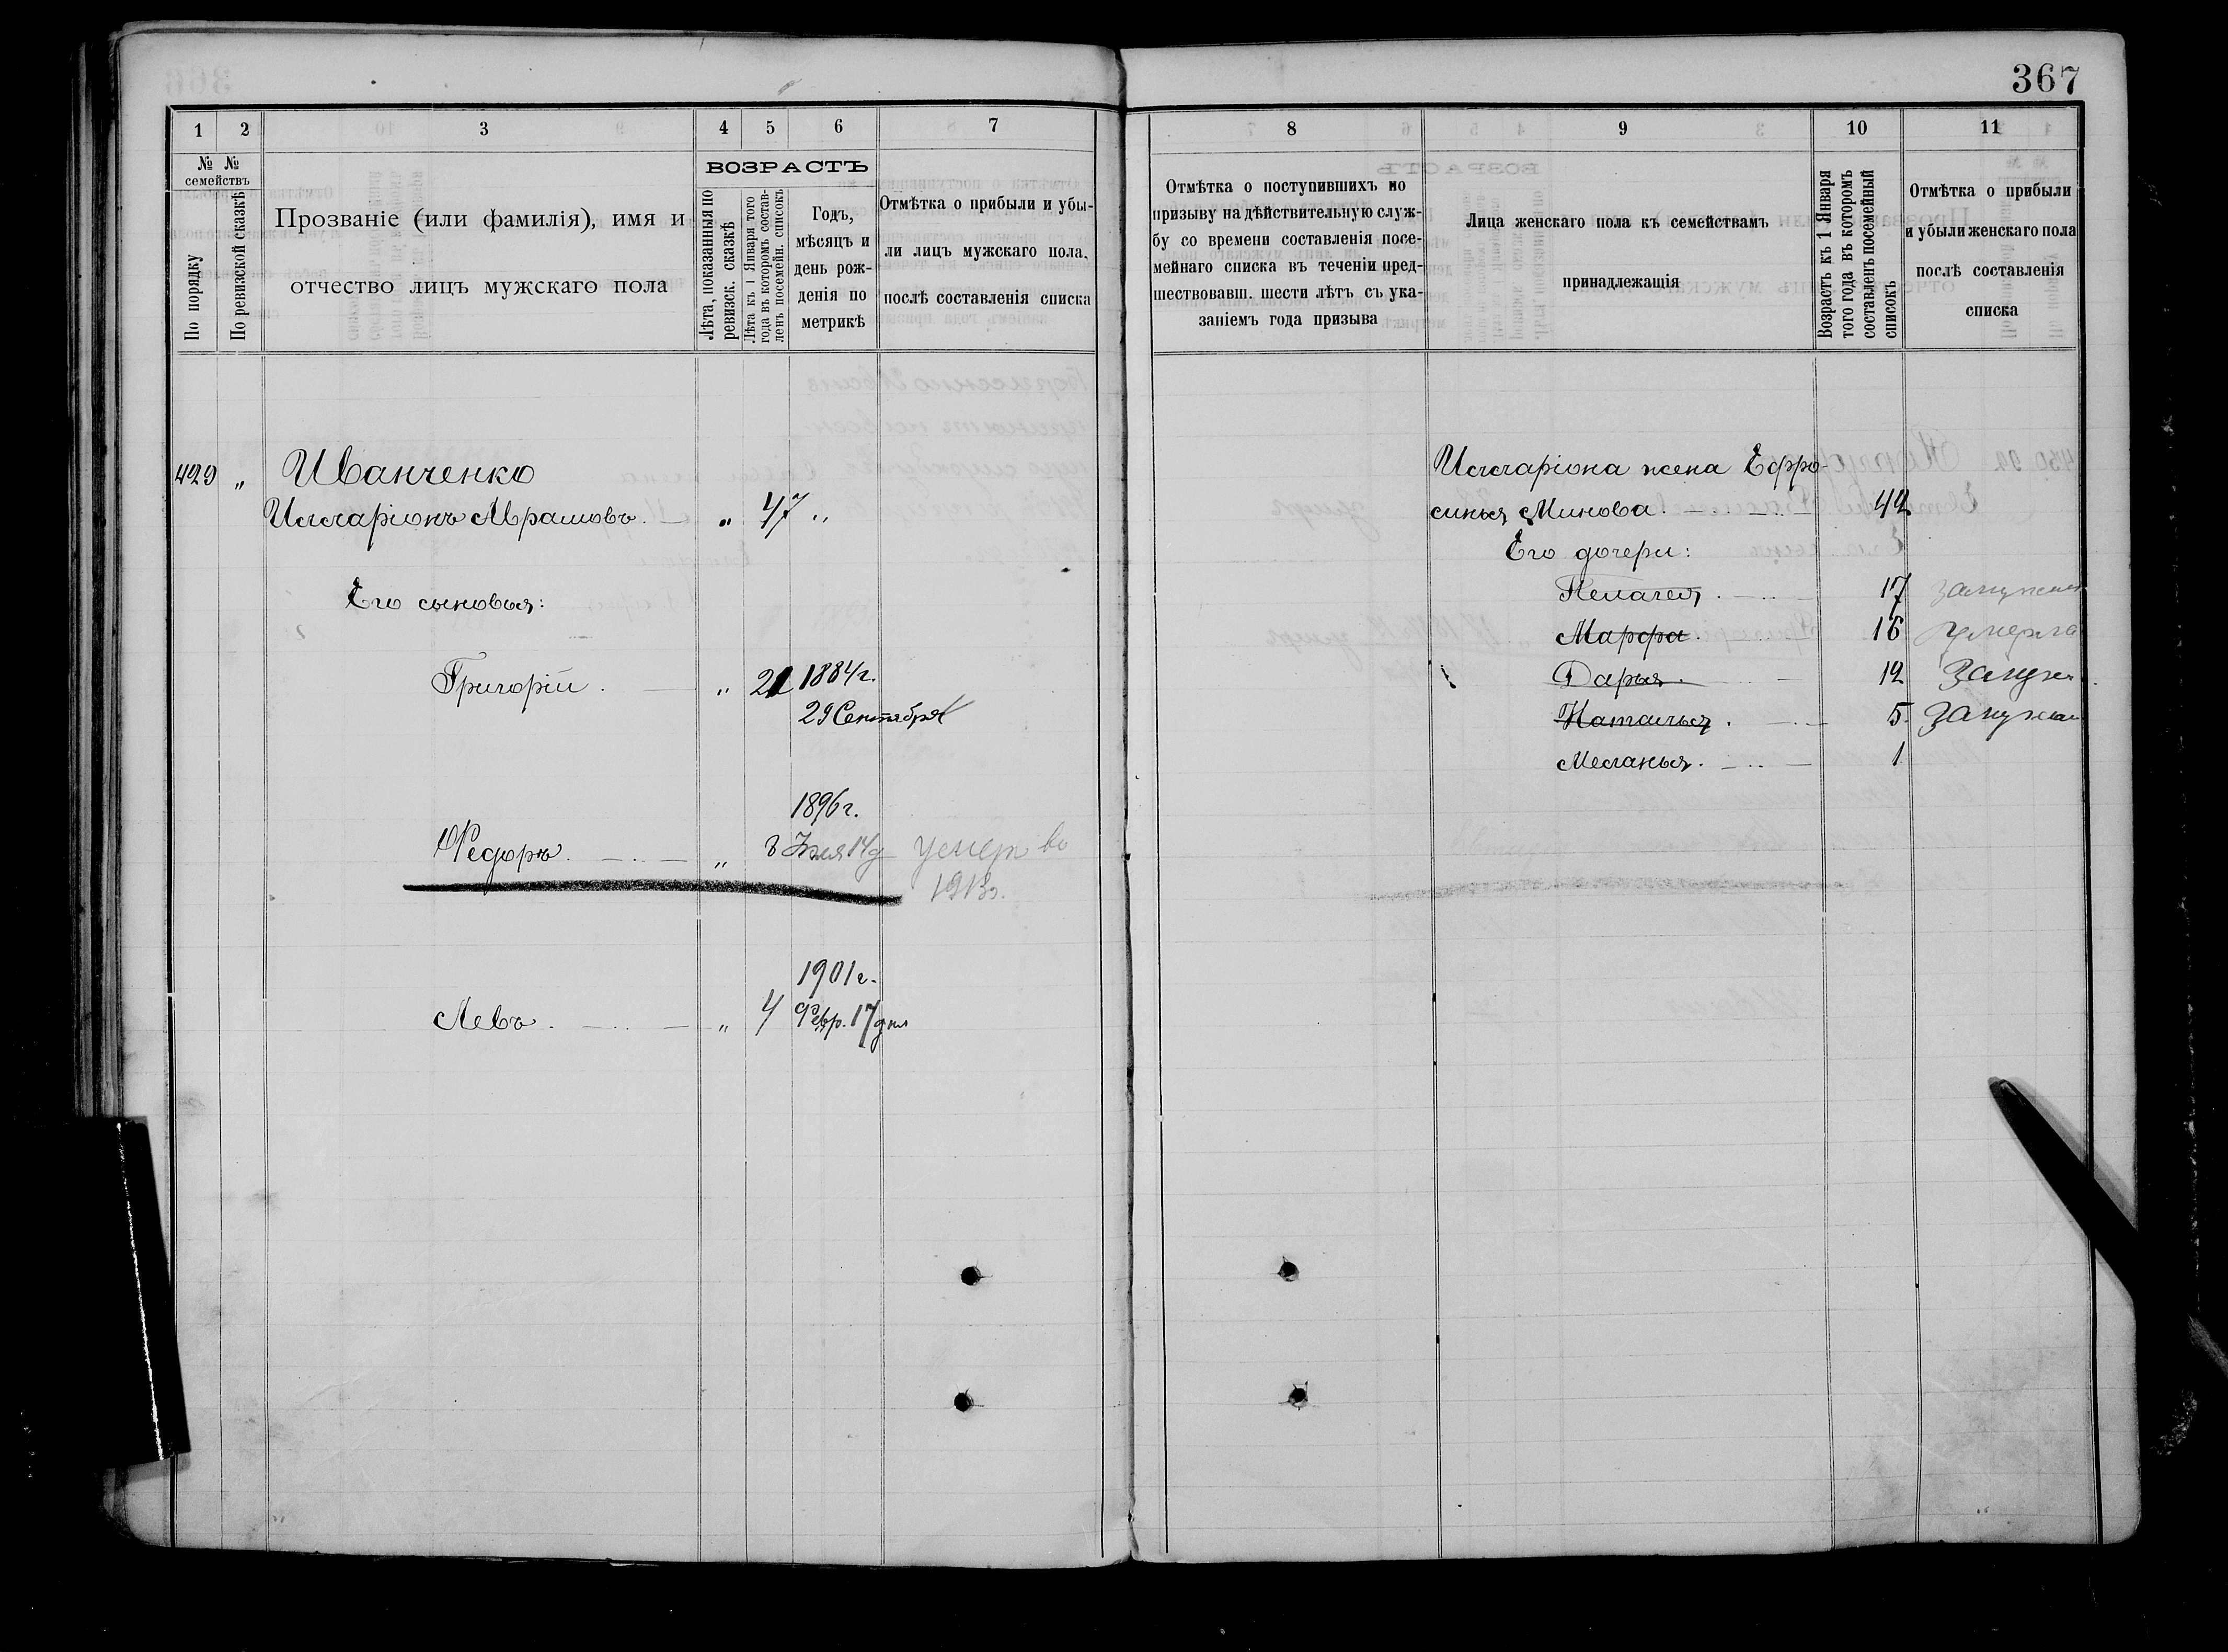 367
1 2 3 4 5 6 7
№ № семействъ
По порядку
По ревизской сказкѣ
Прозваніе (или фамилія), имя и
отчество лицъ мужскаго пола
ВОЗРАСТЪ
Лѣта, показанныя по
ревизск. сказкѣ
Лѣта къ 1 Января того
года въ которомъ состав-
ленъ посемейн. списокъ
Годъ,
мѣсяцъ и
день рож-
денія по
метрикѣ
Отмѣтка о прибыли и убы-
ли лицъ мужскаго пола,
послѣ составленія списка
429 „ Иванченко
Илларіонъ Абрамовъ. „ 47 „
Его сыновья:
Григорій . „ 21 1884 г.
29 Сентября
1896 г.
Федоръ. „ 8 Іюля 14 д умеръ во
1913г.
1901 г.
Левъ. „ 4 Февр. 17 дня
8 9 10 11
Отмѣтка о поступившихъ по
призыву на дѣйствительную служ-
бу со времени составленія посе-
мейнаго списка въ теченіи пред-
шествовавш. шести лѣтъ съ ука-
заніемъ года призыва
Лица женскаго пола къ семействамъ
принадлежащія
Возрастъ къ 1 Января
того года въ которомъ
составленъ посемейный
списокъ
Отмѣтка о прибыли
и убыли женскаго пола
послѣ составленія
списка
Илларіона жена Ефро-
синья Минова. 42
Его дочери:
Пелагея. 17 замужем
Марфа. 16 умерла
Дарья. 12 Замуж.
Наталья. 5 Замужем
Меланья. 1